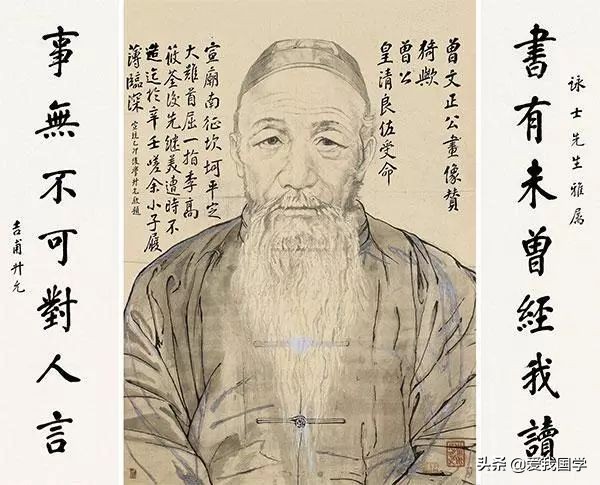 詠士先生雅属
書有未曾經我讀
曾文正公畫像贊
猗歟
曾公
皇清良佐受命
宣廟南征坎坷平定
大難首屈一指李高
筱荃後先繼美遭時不
造迄於辛壬嗟余小子履
薄臨深
宣統乙卯後學升允敬題
事無不可對人言
吉甫升允
头条 @爱我国学